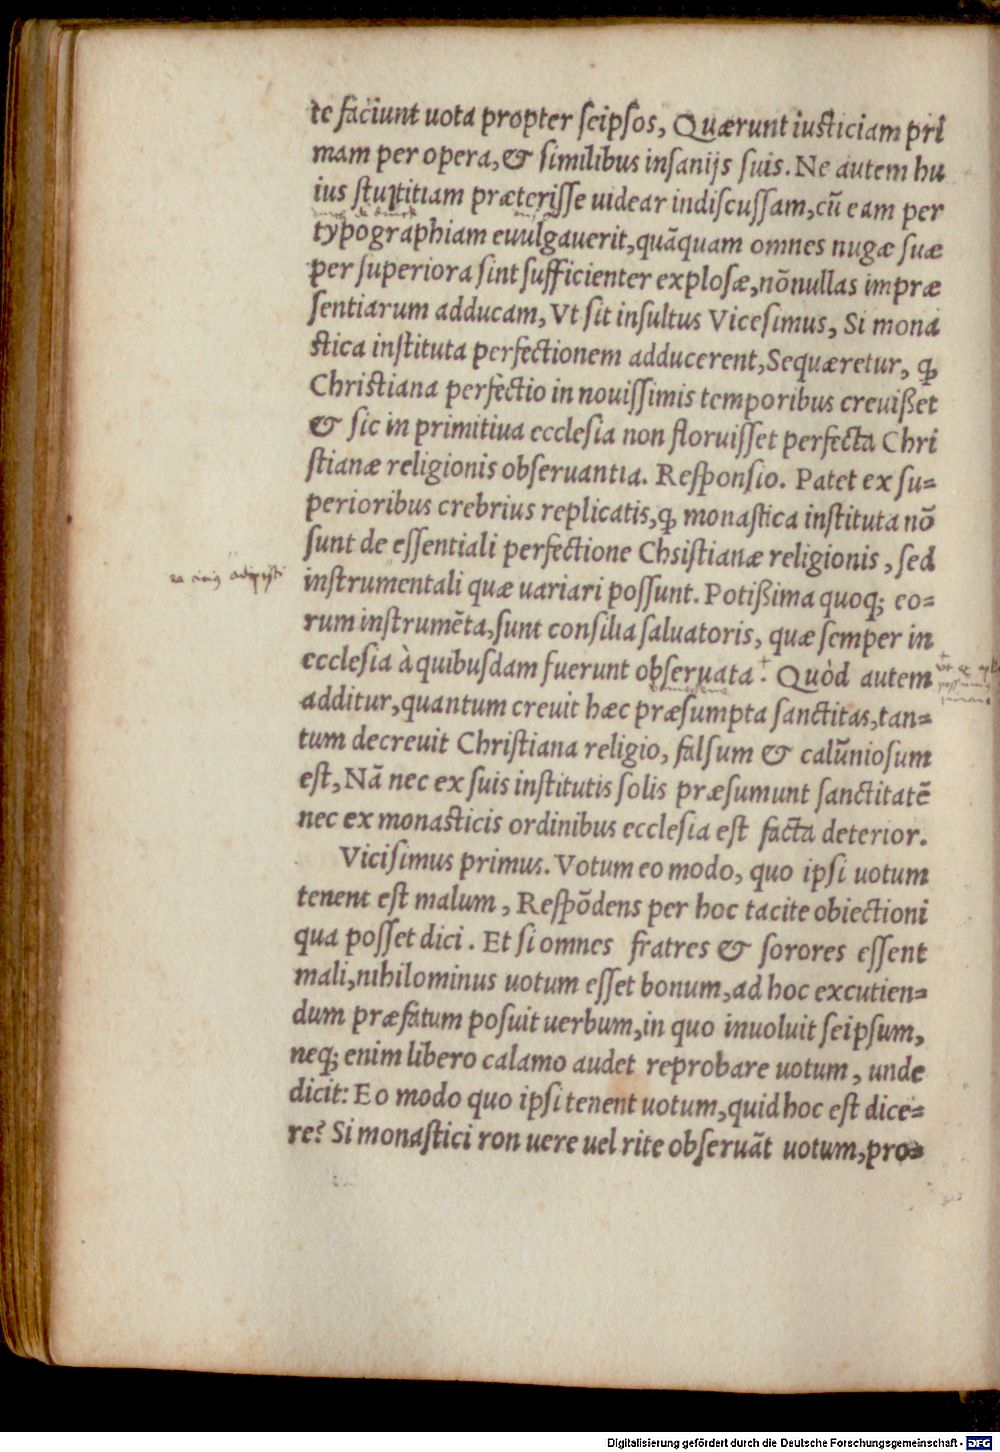 te faciunt uota propter ſeipſos, Quærunt iuſticiam pri
mam per opera, & ſimilibus inſanijs ſuis. Ne autem hu
ius ſtultitiam præteriſſe uidear indiſcuſſam, cũ eam per
typographiam euulgauerit, quãquam omnes nugæ ſuæ
per ſuperiora ſint ſufficienter exploſæ, nõnullas impræ
ſentiarum adducam, Vt ſit inſultus Viceſimus, Si mona
ſtica inſtituta perfectionem adducerent, Sequæretur, ꝙ
Chriſtiana perfectio in nouiſſimis temporibus creuißet
& ſic in primitiua eccleſia non floruiſſet perfecta Chri
ſtianæ religionis obſeruantia. Reſponſio. Patet ex ſu=
perioribus crebrius replicatis, ꝙ monaſtica inſtituta nõ
ſunt de eſſentiali perfectione Chsiſtianæ religionis, ſed
inſtrumentali quæ uariari poſſunt. Potißima quoq; eo=
rum inſtrumẽta, ſunt conſilia ſaluatoris, quæ ſemper in
eccleſia à quibuſdam fuerunt obſeruata. Quòd autem
additur, quantum creuit hæc præſumpta ſanctitas, tan=
tum decreuit Chriſtiana religio, falſum & calũnioſum
eſt, Nã nec ex ſuis inſtitutis ſolis præſumunt ſanctitatẽ
nec ex monaſticis ordinibus eccleſia eſt facta deterior.
Viciſimus primus. Votum eo modo, quo ipſi uotum
tenent eſt malum, Reſpõdens per hoc tacite obiectioni
qua poſſet dici. Et ſi omnes fratres & ſorores eſſent
mali, nihilominus uotum eſſet bonum, ad hoc excutien=
dum præfatum poſuit uerbum, in quo inuoluit ſeipſum,
neq; enim libero calamo audet reprobare uotum, unde
dicit: Eo modo quo ipſi tenent uotum, quid hoc eſt dice=
re? Si monaſtici ron uere uel rite obſeruãt uotum, pro=
Digitalisierung gefördert durch die Deutsche Forschungsgemeinschaft - DFG